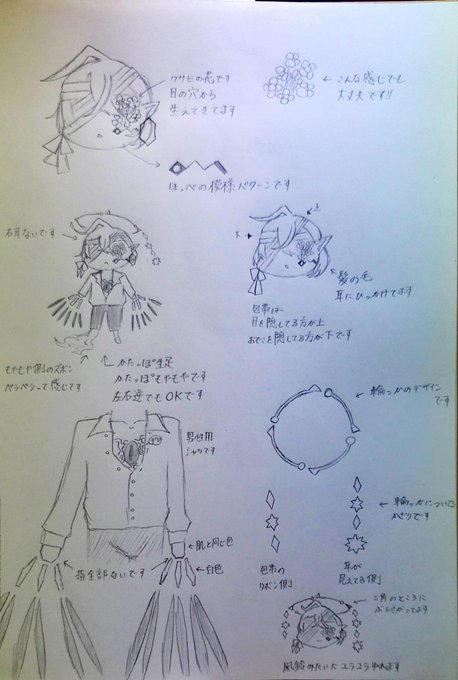 ワサビの花です
目の穴から
生えてきてます
← こんな感じでも
大丈夫です!!
ほっぺの模様パターンです
右耳ないです→
上
下
髪の毛
耳にひっかけてます
包帯は
目を隠してる方が上
おでこを隠してる方が下です
もやもや側のズボン
ペラペラって感じです
かたっぽ生足
かたっぽもやもやです
左右逆でもOKです
← 輪っかのデザイン
です
男性用
シャツです
← 輪っかについてる
かざりです
←肌と同じ色
←白色
指全部ないです
包帯の
リボン側
耳が
見えてる側
三角のところに
ぶらさがってます
風鈴みたいにユラユラゆれます